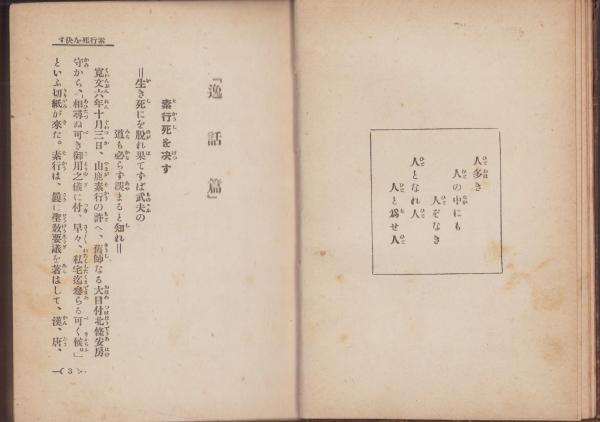 人多き
人の中にも
人ぞなき
人となれ人
人と爲せ人
素行死を決す
『逸話篇』
素行死を决す
＝生き死にを脱れ果てずば武夫の
道も必らず淡まると知れ＝
寛文六年十月三日、山鹿素行の許へ、舊師なる大目付北條安房
守から、「相尋ぬ可き御用之儀に付、早々、私宅迄參らる可く候。」
といふ切紙が來た。素行は、曩に聖敎要議を著はして、漢、唐、
3